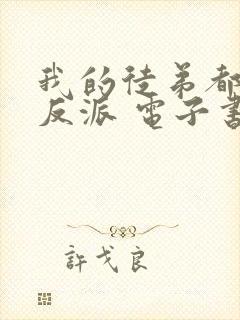 我的徒弟都
反派 電子書
許戈良